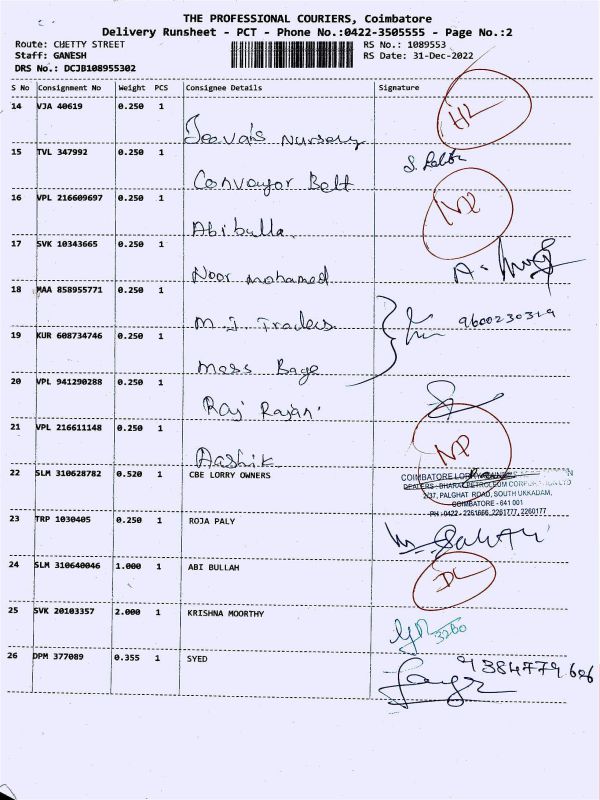 THE PROFESSIONAL COURIERS, Coimbatore
Delivery Runsheet - PCT - Phone No.:0422-3505555 - Page No.:2
Route: CHETTY STREET RS No.: 1089553
Staff: GANESH RS Date: 31-Dec-2022
DRS No.: DCJB108955302
S No Consignment No Weight PCS Consignee Details Signature
14 VJA 40619 0.250 1 Jeeva's Nursery HL
15 TVL 347992 0.250 1 Conveyor Belt
16 VPL 216609697 0.250 1 Abibulla ND
17 SVK 10343665 0.250 1 Noor mohamed
18 MAA 858955771 0.250 1 M.J. Traders 9600230319
19 KUR 608734746 0.250 1 Mass Bage
20 VPL 941290288 0.250 1 Raj Rajan
21 VPL 216611148 0.250 1 Aashik NP
22 SLM 310628782 0.520 1 CBE LORRY OWNERS COIMBATORE LORRY OWNERS
DEALERS : BHARAT PETROLEUM CORPORATION LTD
2/37, PALGHAT ROAD, SOUTH UKKADAM,
COIMBATORE - 641 001
PH : 0422 - 2261666, 2261777, 2260177
23 TRP 1030405 0.250 1 ROJA PALY
24 SLM 310640046 1.000 1 ABI BULLAH DL
25 SVK 20103357 2.000 1 KRISHNA MOORTHY 3260
26 DPM 377089 0.355 1 SYED 9384779606